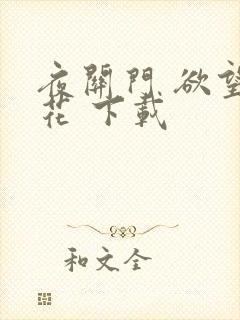 夜關門 欲望
花 下載
和文全